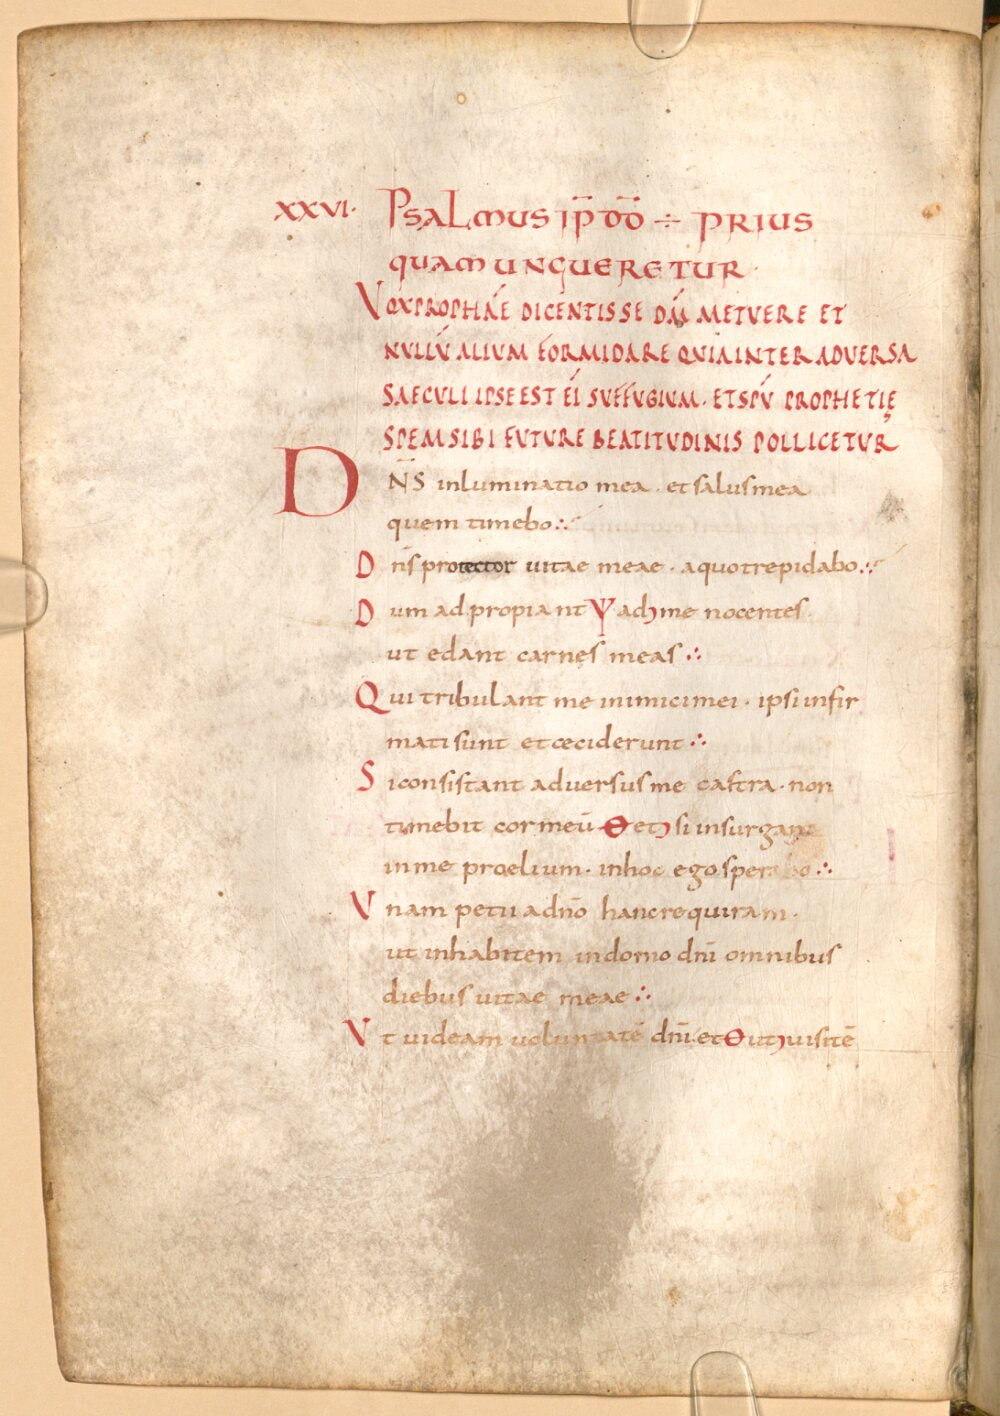 XXVI· PSALMUS IP̄ DD̄ ÷ PRIUS
QUAM UNGUERETUR·
VOX PROPHAE DICENTIS SE DM̄ METVERE ET
NVLLV̄ ALIVM FORMIDARE QVIA INTER ADVERSA
SAECVLI IPSE EST EI SVFFVGIVM· ET SPV̄ PROPHETIĘ
SPEM SIBI FVTVRE BEATITVDINIS POLLICETVR
DN̄S inluminatio mea · et salus mea
quem timebo∴
Dn̄s protector vitae meae · a quo trepidabo∴
Dum adpropiant Ψ adꝫ me nocentes
ut edant carnes meas∴
Qui tribulant me inimici mei · ipsi infir
mati sunt et ceciderunt∴
Si consistant adversus me castra · non
timebit cor meū Θ etꝫ si insurgant
in me proelium · in hoc ego sperabo∴
Vnam petii a dn̄o hanc requiram ·
ut inhabitem in domo dn̄i omnibus
diebus vitae meae∴
Vt videam voluntatē dn̄i· et Θ utꝫ visitē